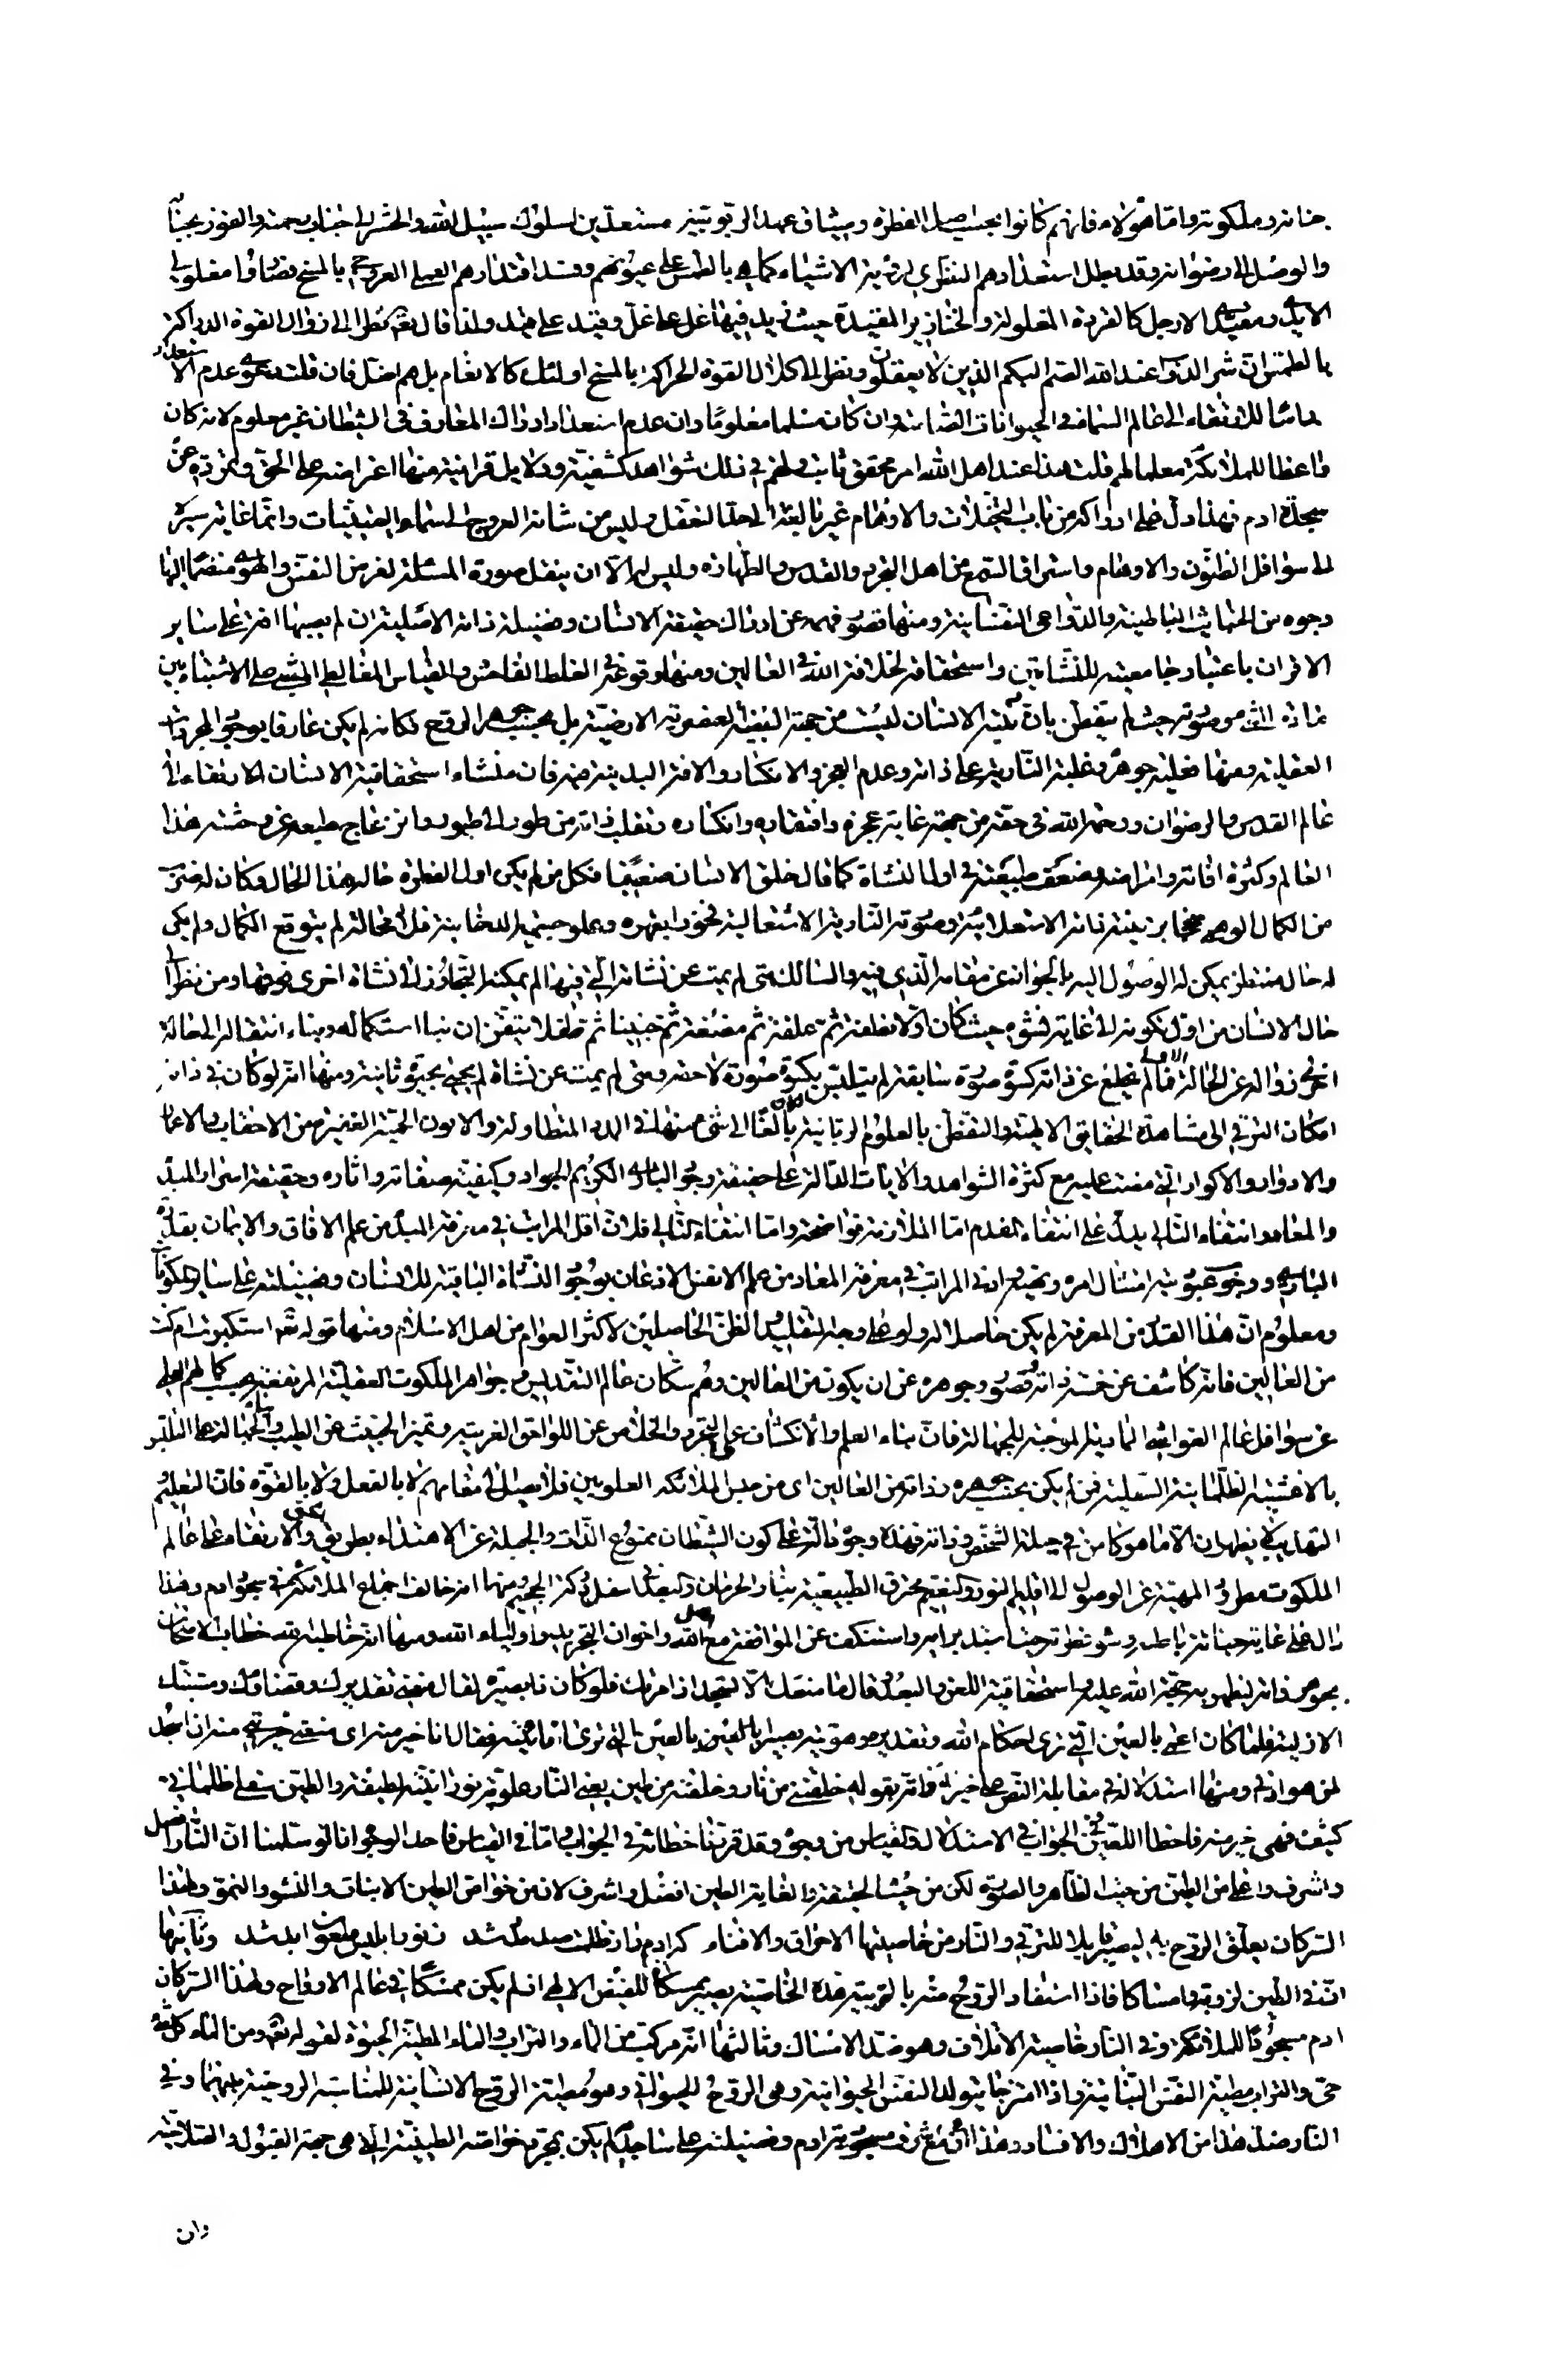 جنانه وملكوته واما هؤلاء فانهم كانوا بحسب اصل الفطرة وميثاق عهد الربوبية مستعدين لسلوك سبيل الله والحشر الى جناب رحمته والفوز بجنانه
والوصل الى رضوانه وقد بطل استعدادهم النظري لرؤية الاشياء كما هي بالطمس على عيونهم وفسد اقتدارهم العملي العروجي بالمسخ فصاروا مغلولي
الايدي ومقيدي الارجل كالقردة المغلولة والخنازير المقيدة حيث زيد فيها غل على غل وقيد على قيد ولذا قال تعالى نظرا الى زوال القوة الدراكة
بالطمس ان شر الدواب عند الله الصم البكم الذين لا يعقلون ونظرا الى كلال القوة الحراكة بالمسخ اولئك كالانعام بل هم اضل فان قلت دعوى عدم الاستعداد
للارتقاء الى عالم السماء في الحيوانات الصامتة وان كان مسلما معلوما وان عدم استعداد ادراك المعارف في الشيطان غير معلوم لانه كان
واعظا للملائكة معلما لهم قلت هذا عند اهل الله امر محقق ثابت ولهم في ذلك شواهد كشفية ودلايل قرانية منها اعراضه على الحق وتمرده عن
سجدة ادم فهذا دل على ادراكه من باب التخيلات والاوهام غير بالغة الى حد التعقل وليس من شانه العروج الى سماء اليقينيات وانما غاية سيره
الى سوافل الظنون والاوهام واستراق السمع من اهل التجرد والقدس والطهارة وليس له الا ان ينقل صورة المسئلة لغرض النفس والهوى منضما اليها
وجوه من الخبائث الباطنية والدواعي النفسانية ومنها قصور فهمه عن ادراك حقيقة الانسان وفضيلة ذاته الاصلية ان لم يصبها افة على ساير
الاقران باعتبار جامعيته للنشاتين واستحقاقه لخلافة الله في العالمين ومنها وقوعه في الغلط الفاحش والقياس المغالطي المبني على الاشتباه بين
مادة الشئ وصورته حيث لم يتفطن بان انية الانسان ليست من جهة البنية العنصرية الارضية بل بحسب جوهر الروح فكانه لم يكن عارفا بوجود المجردات
العقلية ومنها فعلية جوهره وغلبة النارية على ذاته وعدم العجز والانكسار والافة البدنية منه فان منشاء استحقاقية الانسان الارتقاء الى
عالم القدس والرضوان ورحمة الله في حقه من جهة غاية عجزه وافتقاره وانكساره وتقلب ذاته من طور الى طور وانزعاج طبيعه عن وحشة هذا
العالم وكثرة افاته وامراضه وضعف طبيعته في اول النشاة كما قال خلق الانسان ضعيفا فكل من لم يكن اول الفطرة حاله هذا الحال وكان له ضرب
من الكمال الوهمي منجبرا نيته ذاته الاستعدادية وصورته النارية الاشتعالية فخور ابقهره وعلو حيثيته الدخانية فلا محالة لم يتوقع الكمال ولم يكن
له حال منتظرة يمكن له الوصول اليه بالجواز عن مقامه الذي فيه والسالك متى لم يمت عن نشاته التي فيها لم يمكنه التجاوز الى نشاة اخرى فوقها ومن نظر الى
حال الانسان من اول تكونه الى غاية نشوه حيث كان اولا نطفة ثم علقة ثم مضغة ثم جنينا ثم طفلا تيقن ان بناء استكماله وبناء انتقاله الى حالة
اخرى زواله عن الحالة الاولى فما لم يخلع عن ذاته كسوة صورة سابقة لم يتلبس بكسوة صورة لاحقة ومتى لم يمت عن نشاة لم يجئ بحيوة ثانية ومنها انه لو كان في ذاته
امكان الترقي الى مشاهدة الحقايق الالهية والتفطن بالعلوم الربانية بالغا الى شئ منها في المدد المتطاولة والازمنة الغفيرة من الاحقاب والاعمار
والادوار والاكوار التي مضت عليه مع كثرة الشواهد والايات الدالة على حقيقة وجود البارئ الكريم الجواد وكيفية صفاته واثاره وحقيقة اسرار المبدء
والمعاد وانتفاء التالي يدل على انتفاء المقدم اما الملازمة فواضحة واما انتفاء التالي فلان اقل المراتب في معرفة المبدء من علم الافاق والايمان بقدرة
البارئ ووجوب عبوديته امتثال امره ونهيه وادنى المراتب في معرفة المعاد من علم الانفس الاذعان بوجود النشاة الباقية للانسان وفضيلته على ساير المكونات
ومعلوم ان هذا القدر من المعرفة لم يكن حاصلا له ولو على وجه التقليد والظن الحاصلين لاكثر العوام من اهل الاسلام ومنها قوله تعالى استكبرت ام كنت
من العالين فانه كاشف عن خسة ذاته وقصور جوهره عن ان يكون من العالين وهم سكان عالم التقديس وجواهر الملكوت العقلية المرتفعة بحسب كمالهم العلمي
عن سوافل عالم الغواشي المادية الموجبة للجهالة فان بناء العلم والانكشاف على التجرد والخلاص عن اللواحق الغريبة وتميز الخبيث عن الطيب وبناء الجهالة على التلبس
بالاغشية الظلمانية السفلية فمن لم يكن بحسب جوهره وذاته من العالين اى من جنس الملائكة العلويين فلا يصل الى مقامهم لا بالفعل ولا بالقوة فان التعليم
التهذيب لا يظهران الا ما هو كامن في جبلة الشخص وذاته فهذه وجوه دالة على كون الشيطان ممنوع الذات والجبلة عن الاهتداء بطريق الحق والارتقاء الى عالم
الملكوت مطرود المهية عن الوصول الى اقليم النور والنعيم محترق الطبيعة بنار الحرمان والبعد في اسفل دركة الجحيم ومنها انه خالف اجماع الملائكة في سجود ادم وهذا
دال على غاية خباثة باطنه وسوء فطرته حيث استبد برايه واستنكف عن الموافقة مع اهل الله واخوان التجريد واولياء الله ومنها انه خاطبه الله خطاب الامتحان
بجوهر ذاته ليظهر به حجة الله عليه واستحقاقية اللعن والبعد فقال ما منعك الا تسجد اذ امرتك فلو كان ذا بصيرة لقال منعني تقديرك وقضاؤك ومشيتك
الازلية فلما كان اعمى بالعين التي ترى احكام الله وتقديره وهويته بصيرا بالعين التي ترى انانيته فقال انا خير منه اى منعني خيريتي منه ان اسجد
لمن هو ادنى ومنها استدلاله في مقابلة النص على خيرية ذاته بقوله خلقتني من نار وخلقته من طين يعنى النار علوية نورانية لطيفة والطين سفلي ظلماني
كثيف فهى خير منه فاخطا اللعين في الجواب في الاستدلال والقياس من وجوه وقد قررنا خطائه في الجواب واما في القياس فاحد الوجوه انا لو سلمنا ان النار افضل
واشرف واعلى من الطين من حيث الظاهر والصورة لكن من حيث الحقيقة والغاية الطين افضل واشرف لان من خواص الطين الانبات والنشو والنمو ولهذا
السر كان تعلق الروح به ليصير قابلا للترقي والنار من خاصيتها الاحراق والافناء كرادم ز نار ظلمت صد ملك شد ز نور ابليس ملعون ابد شد وثانيها
ان في الطين لزوجة وامساكا فاذا استفاد الروح منه بالتربية هذه الخاصية يصير ممسكا للفيض الالهي اذ لم يكن ممسكا في عالم الارواح ولهذا السر كان
ادم مسجودا للملائكة وفي النار خاصية الاتلاف وهو ضد الامساك وثالثها انه مركب من الماء والتراب والماء المطية الحيوة لقوله تعالى ومن الماء كل شئ
حى والتراب مطية النفس النباتية واذا امتزجا يتولد النفس الحيوانية وهى الروح الحيواني وهو مطية الروح الانسانية للمناسبة الروحية بينهما وفي
النار ضد هذا من الاهلاك والافساد وهذا ان مع شرف مسجودية ادم وفضيلته على ساجديه لم يكن بمجرد خواصه الطينية التي هى جهة القبول والصلاحية
وان